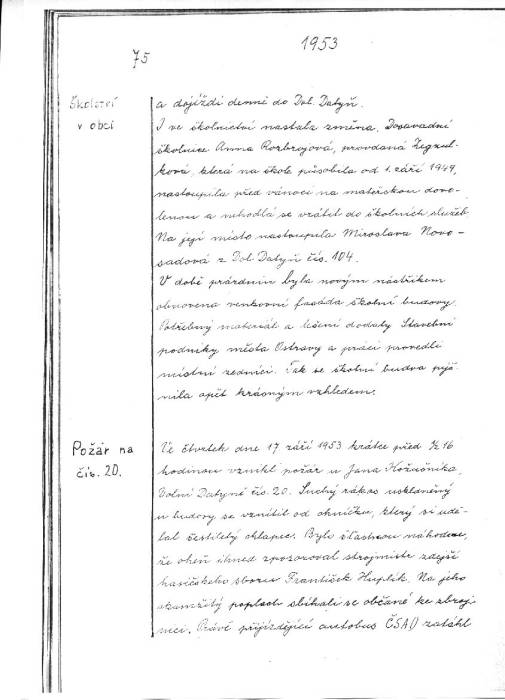 75
1953
Školství
v obci
a dojíždí denně do Dol. Datyň.
I ve školnictví nastala změna. Dosavadní
školnice Anna Rozbrojová, provdaná Zegzul-
ková, která na škole působila od 1. září 1949,
nastoupila před vánoci na mateřskou dovo-
lenou a nehodlá se vrátit do školních služeb.
Na její místo nastoupila Miroslava Novo-
sadová z Dol. Datyň čís. 104.
V době prázdnin byla novým nástřikem
obnovena venkovní fasáda školní budovy.
Potřebný materiál a lešení dodaly Stavební
podniky města Ostravy a práci provedli
místní zedníci. Tak se školní budova pyš-
nila opět krásným vzhledem.
Požár na
čís. 20.
Ve čtvrtek dne 17 září 1953 krátce před ½16
hodinou vznikl požár u Jana Kožušníka,
Dolní Datyně čís. 20. Suchý rákos uskladněný
u budovy se vznítil od ohníčku, který si udě-
lal šestiletý chlapec. Bylo šťastnou náhodou,
že oheň ihned zpozoroval strojmistr zdejší
hasičského sboru František Huplík. Na jeho
okamžitý poplach sbíhali se občané ke zbroj-
nici. Právě přijíždějící autobus ČSAD zatáhl